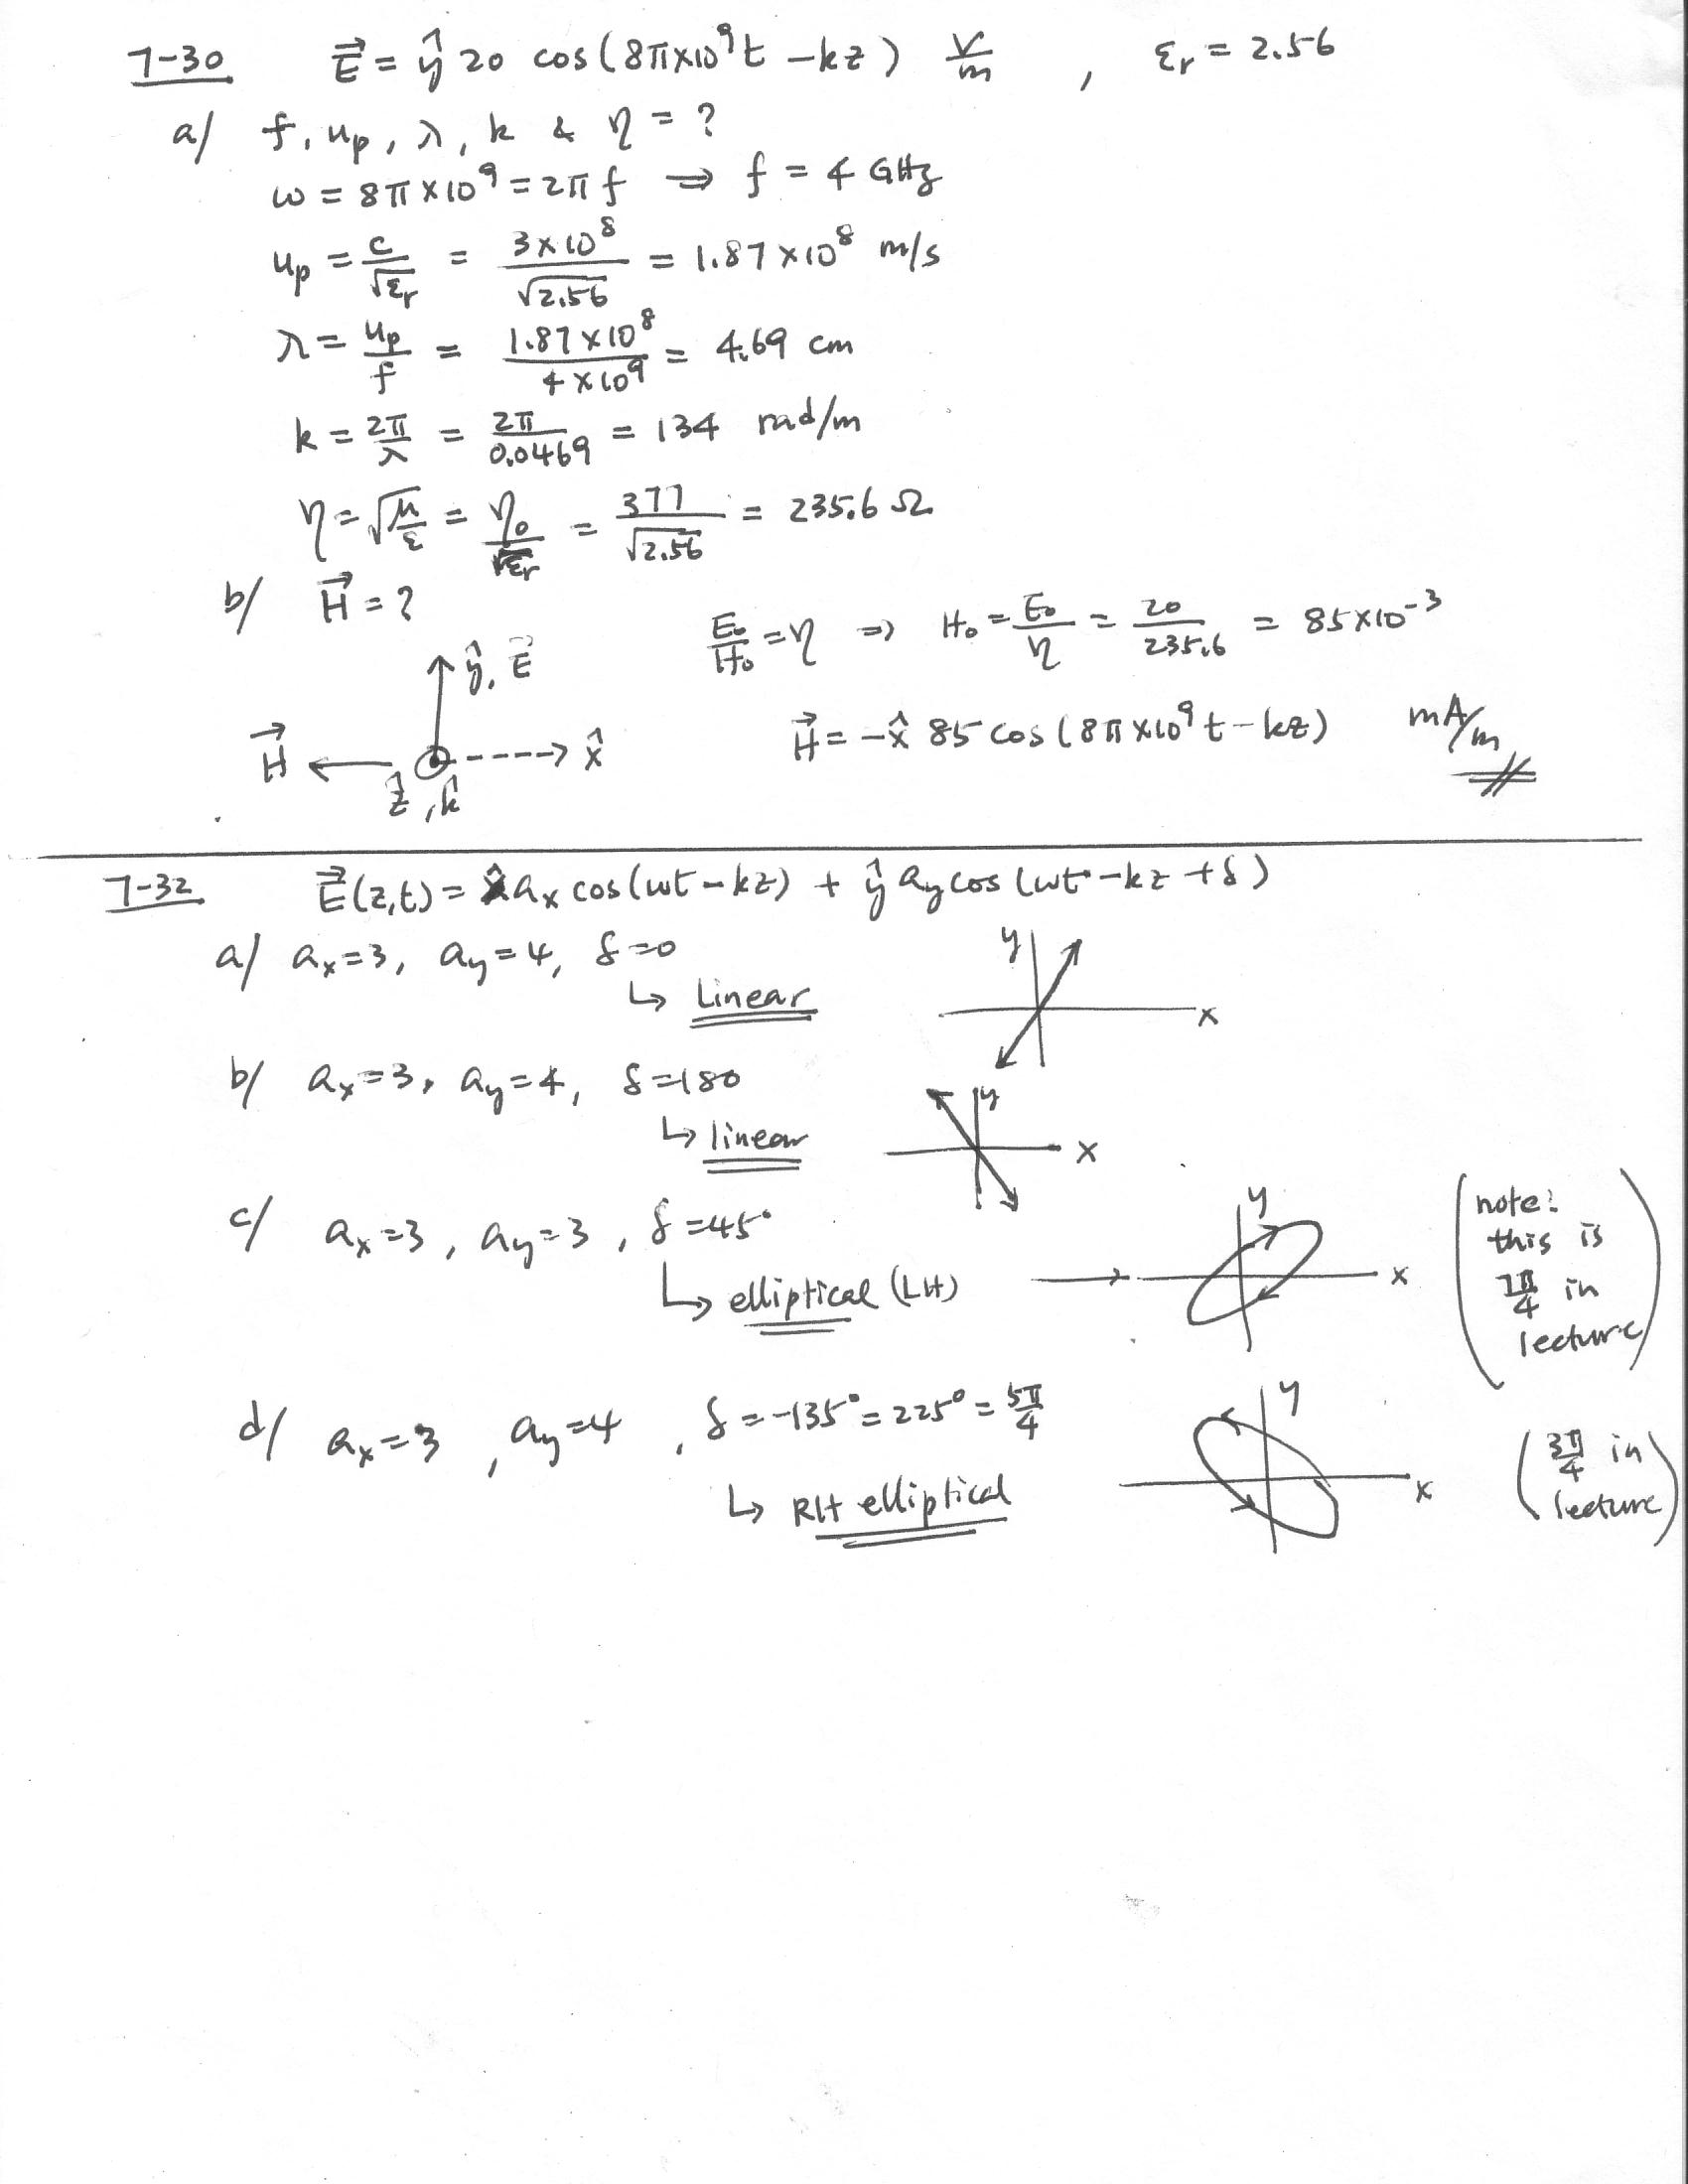 7-30 E⃗ = ŷ 20 cos(8π×10⁹t - kz) V/m , εr = 2.56
a/ f, up, λ, k & η = ?
ω = 8π×10⁹ = 2πf ⇒ f = 4 GHz
up = c/√εr = 3×10⁸/√2.56 = 1.87×10⁸ m/s
λ = up/f = 1.87×10⁸/4×10⁹ = 4.69 cm
k = 2π/λ = 2π/0.0469 = 134 rad/m
η = √(μ/ε) = η₀/√εr = 377/√2.56 = 235.6 Ω
b/ H⃗ = ?
E₀/H₀ = η ⇒ H₀ = E₀/η = 20/235.6 = 85×10⁻³
ŷ, E⃗
H⃗ x̂
ẑ, k̂
H⃗ = -x̂ 85 cos(8π×10⁹t - kz) mA/m
7-32 E⃗(z,t) = x̂ ax cos(ωt - kz) + ŷ ay cos(ωt - kz + δ)
a/ ax=3, ay=4, δ=0
↳ Linear
y
x
b/ ax=3, ay=4, δ=180
↳ linear
y
x
c/ ax=3, ay=3, δ=45°
↳ elliptical (LH)
y
x
(note:
this is
7π/4 in
lecture)
d/ ax=3, ay=4, δ=-135°=225°=5π/4
↳ RH elliptical
y
x
(3π/4 in
lecture)